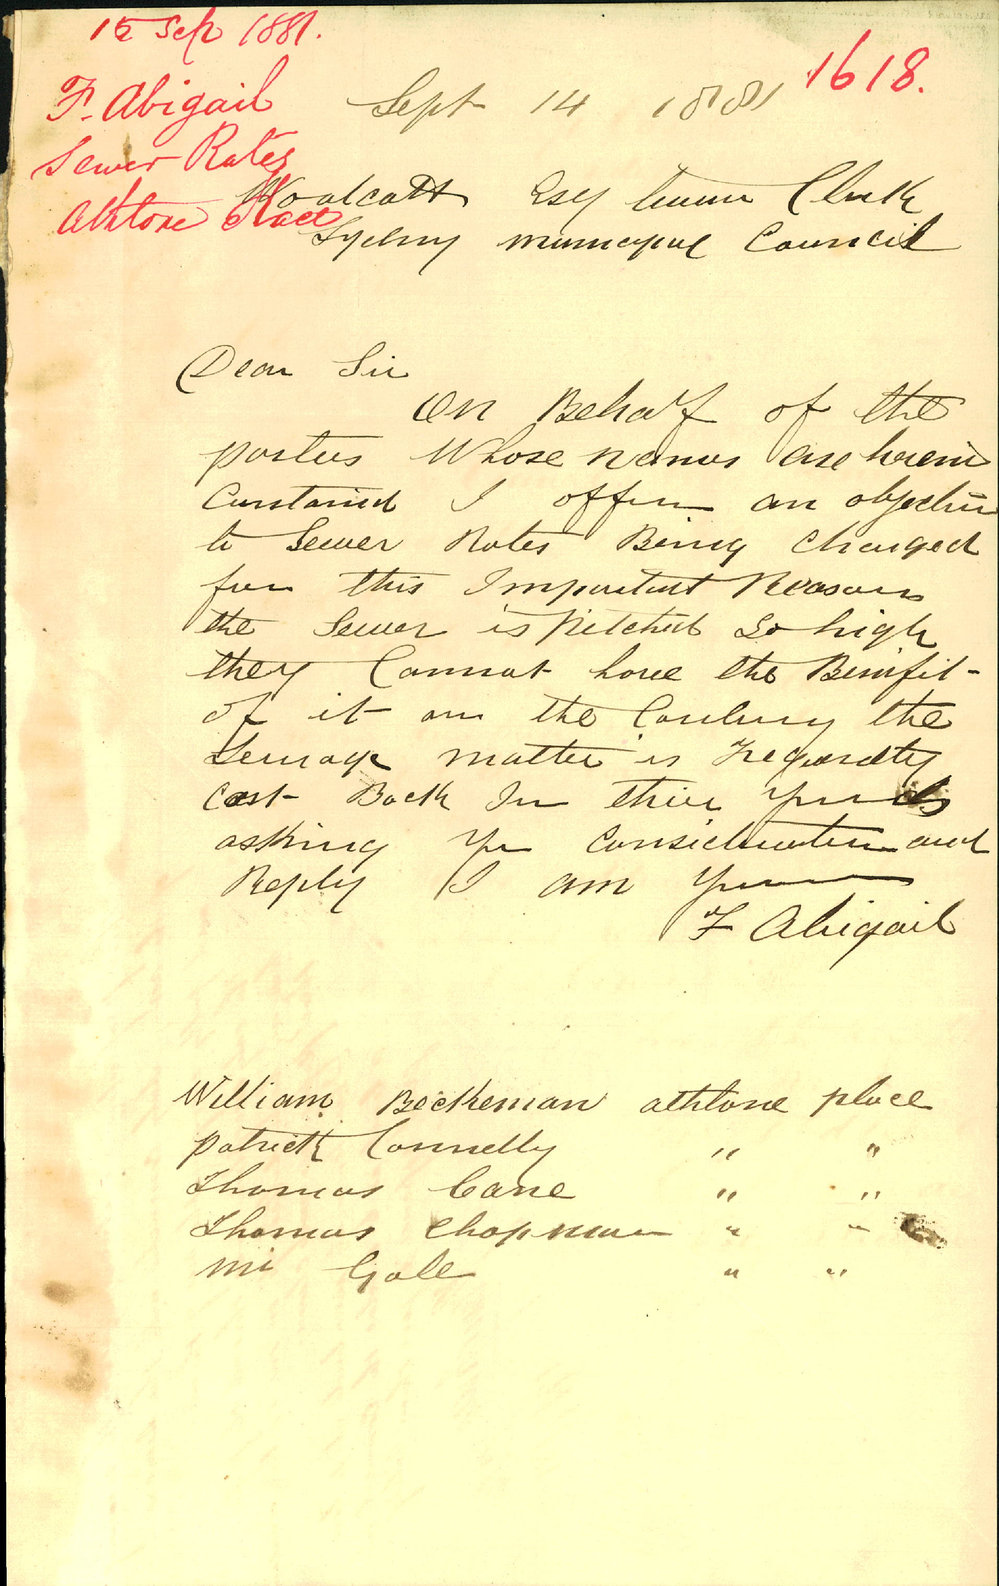 15 Sep 1881.
1618.
F. Abigail
Sewer Rates
Athlone Place
Sept 14 1881
Woolcott Esq Town Clerk
Sydney municipal Council
Dear Sir
On Behalf of the
parties Whose names are herein
Contained I offer an objection
to Sewer Rates Being charged
for this Important Reason
the Sewer is Pitched So high
they Cannot have the Binifit
of it on the Contury the
Sewrage matter is Freqwently
cast Back In thier yards
asking yr Consideration and
Reply I am yours
F Abigail
William Beckeman athlone place
patrick Connelly " "
Thomas Cane " "
Thomas Chapman " "
Mr Gale " "